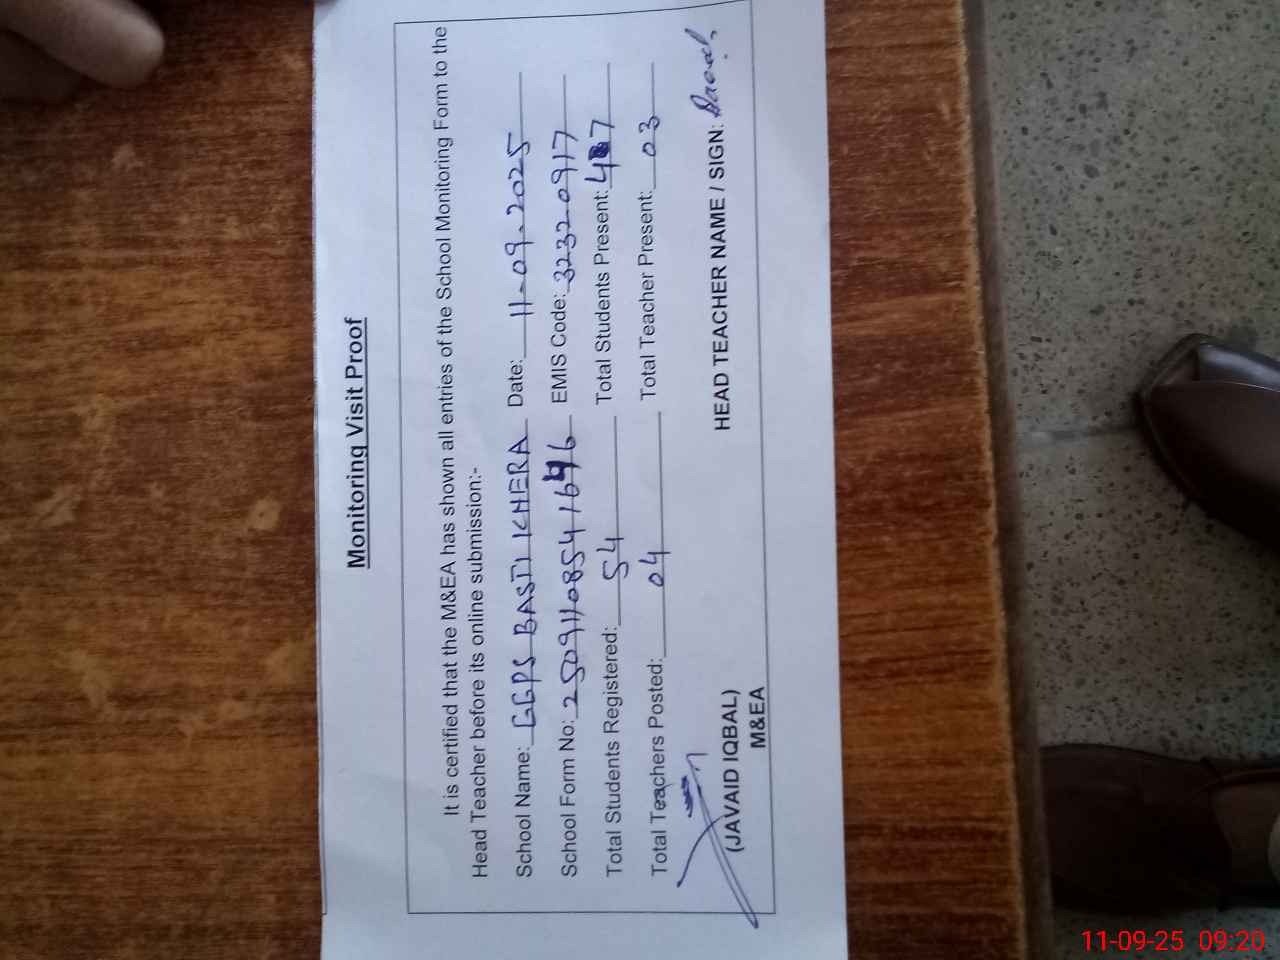 Monitoring Visit Proof
It is certified that the M&EA has shown all entries of the School Monitoring Form to the
Head Teacher before its online submission:-
School Name: GGPS BASTI KHERA Date: 11-09-2025
School Form No: 25091108541646 EMIS Code: 32320917
Total Students Registered: 54 Total Students Present: 47
Total Teachers Posted: 04 Total Teacher Present: 03
(JAVAID IQBAL) HEAD TEACHER NAME / SIGN:
M&EA
11-09-25 09:20